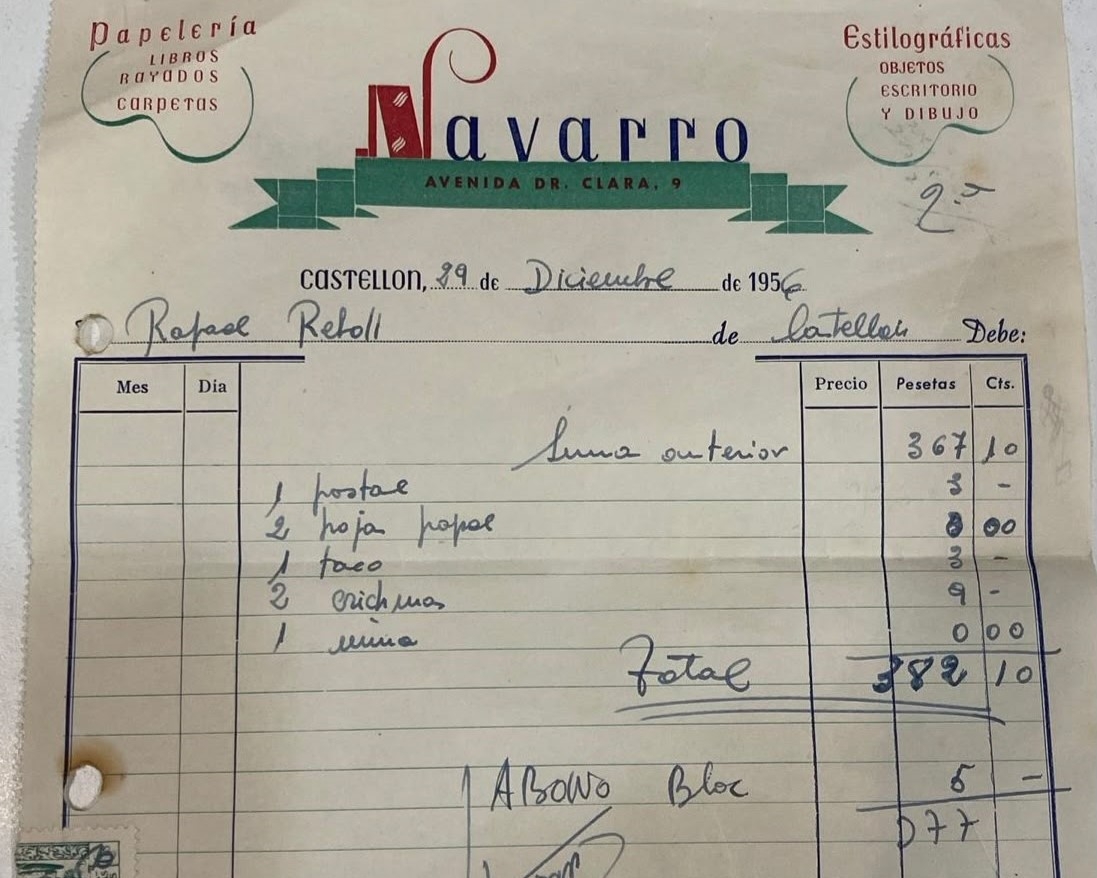 Papelería
LIBROS
RAYADOS
CARPETAS
Estilográficas
OBJETOS
ESCRITORIO
Y DIBUJO
Navarro
AVENIDA DR. CLARA, 9
CASTELLON, 29 de Diciembre de 1956
Rafael de Castellon Debe:
Mes Dia Precio Pesetas Cts.
Suma anterior 367 10
1 postal 3 -
2 hoja papel 00
1 taco 3 -
2 9 -
1 mina 0 00
Total 382 10
ABONO Bloc 5 -
377